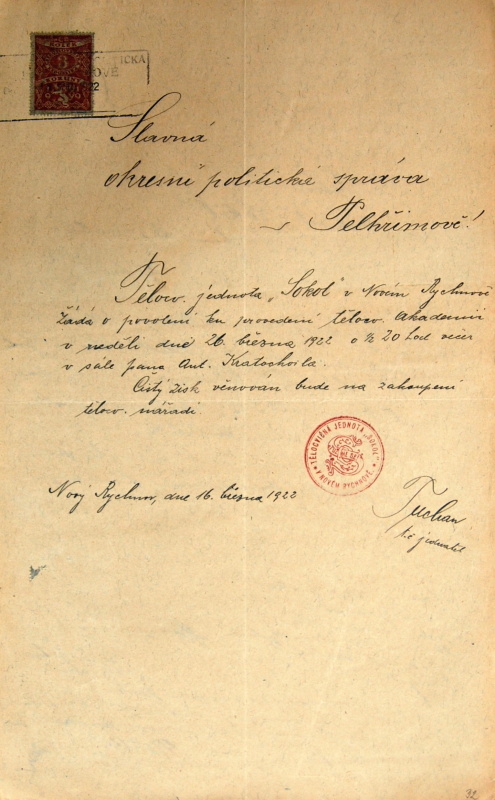 KOLEK
3
KORUNY
Slavná
okresní politické správa
v Pelhřimově!
Tělocv. jednota „Sokol" v Novém Rychnově
žádá o povolení ku provedení tělocv. Akademii
v neděli dne 26. března 1922 o ½ 20 hod večer
v sále pana Ant. Kratochvíla.
Čistý zisk věnován bude na zakoupení
tělocv. nářadí.
TĚLOCVIČNÁ JEDNOTA „SOKOL"
V NOVÉM RYCHNOVĚ
Nový Rychnov, dne 16. března 1922
t.č. jednatel
32